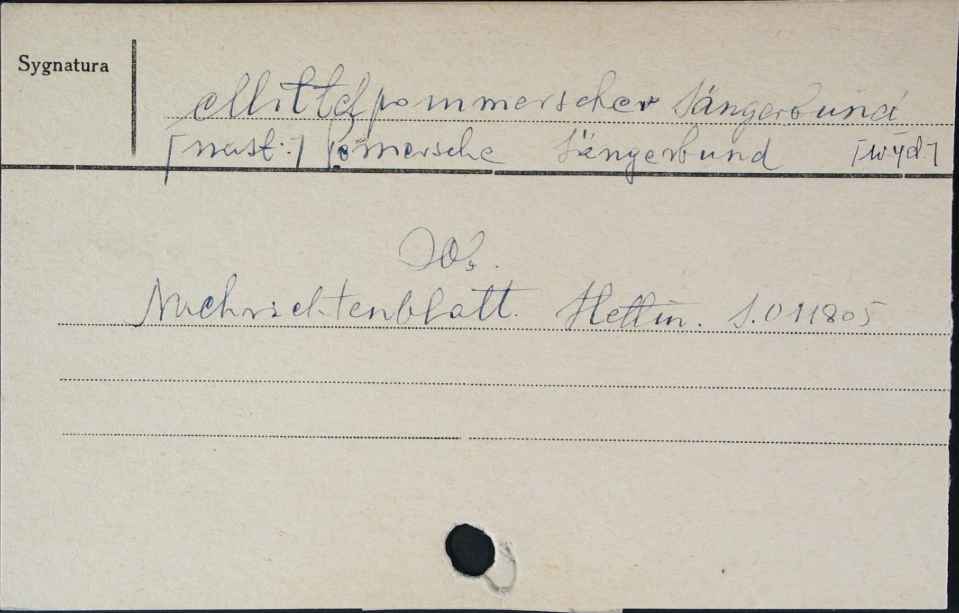 Sygnatura
Mittelpommerscher Sängerbund
[nast.:] Pommersche Sängerbund [wyd]
Ob.
Nachrichtenblatt. Stettin. S.011805